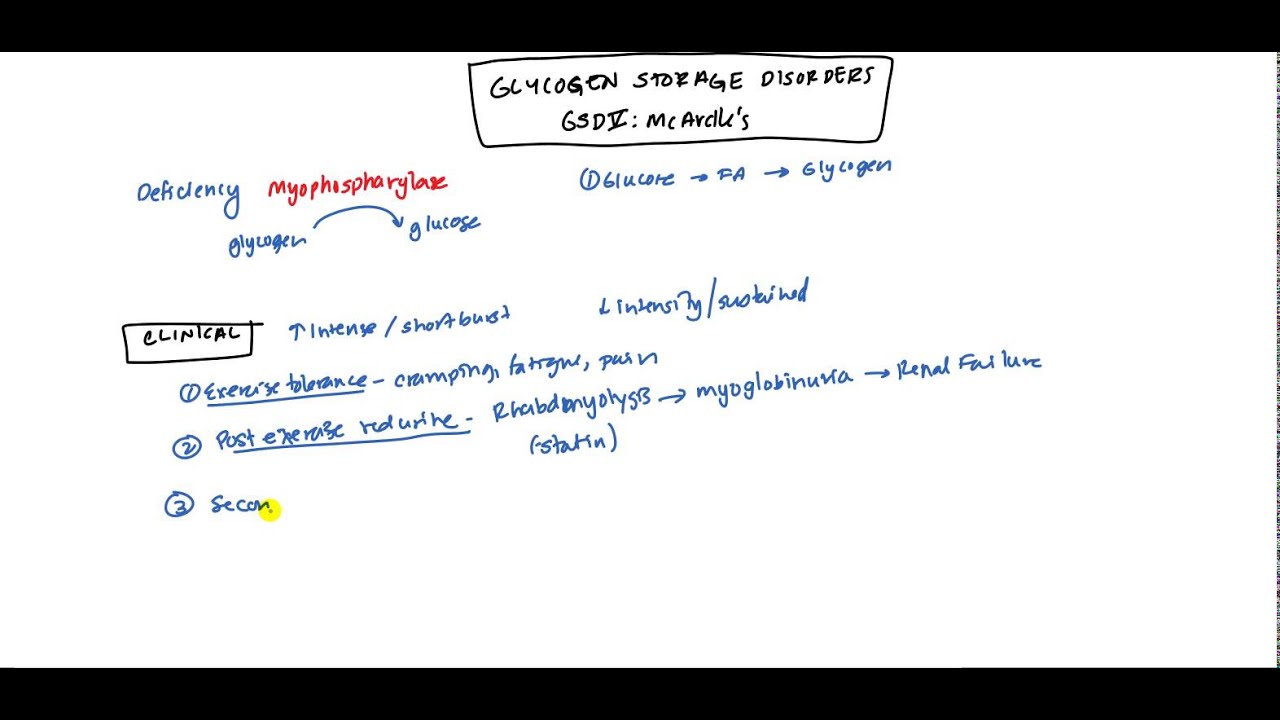 GLYCOGEN STORAGE DISORDERS
GSD V: McArdle's
Deficiency Myophosphorylase
glycogen → glucose
① Glucose → FA → Glycogen
CLINICAL
↑ Intense / short burst
↓ intensity / sustained
① Exercise tolerance - cramping, fatigue, pain
② Post exercise red urine - Rhabdomyolysis → myoglobinuria → Renal Failure
(statin)
③ Secon